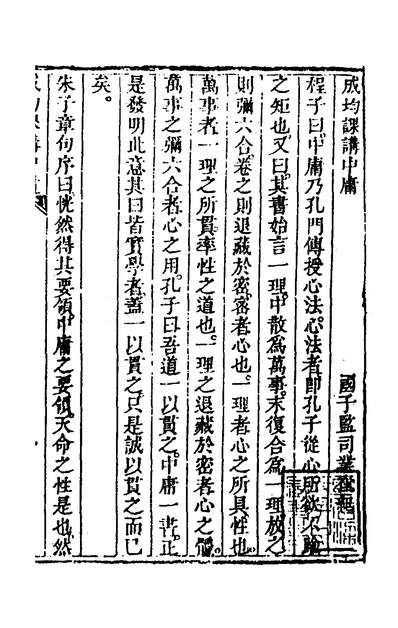 成均課講中庸
國子監司業崔紀
程子曰中庸乃孔門傳授心法心法者卽孔子從心所欲不踰
之矩也又曰其書始言一理中散爲萬事末復合爲一理放之
則彌六合卷之則退藏於密密者心也一理者心之所具性也
萬事者一理之所貫率性之道也一理之退藏於密者心之體
萬事之彌六合者心之用孔子曰吾道一以貫之中庸一書正
是發明此意其曰皆實學者蓋一以貫之只是誠以貫之而已
矣
朱子章句序曰恍然得其要領中庸之要領天命之性是也然